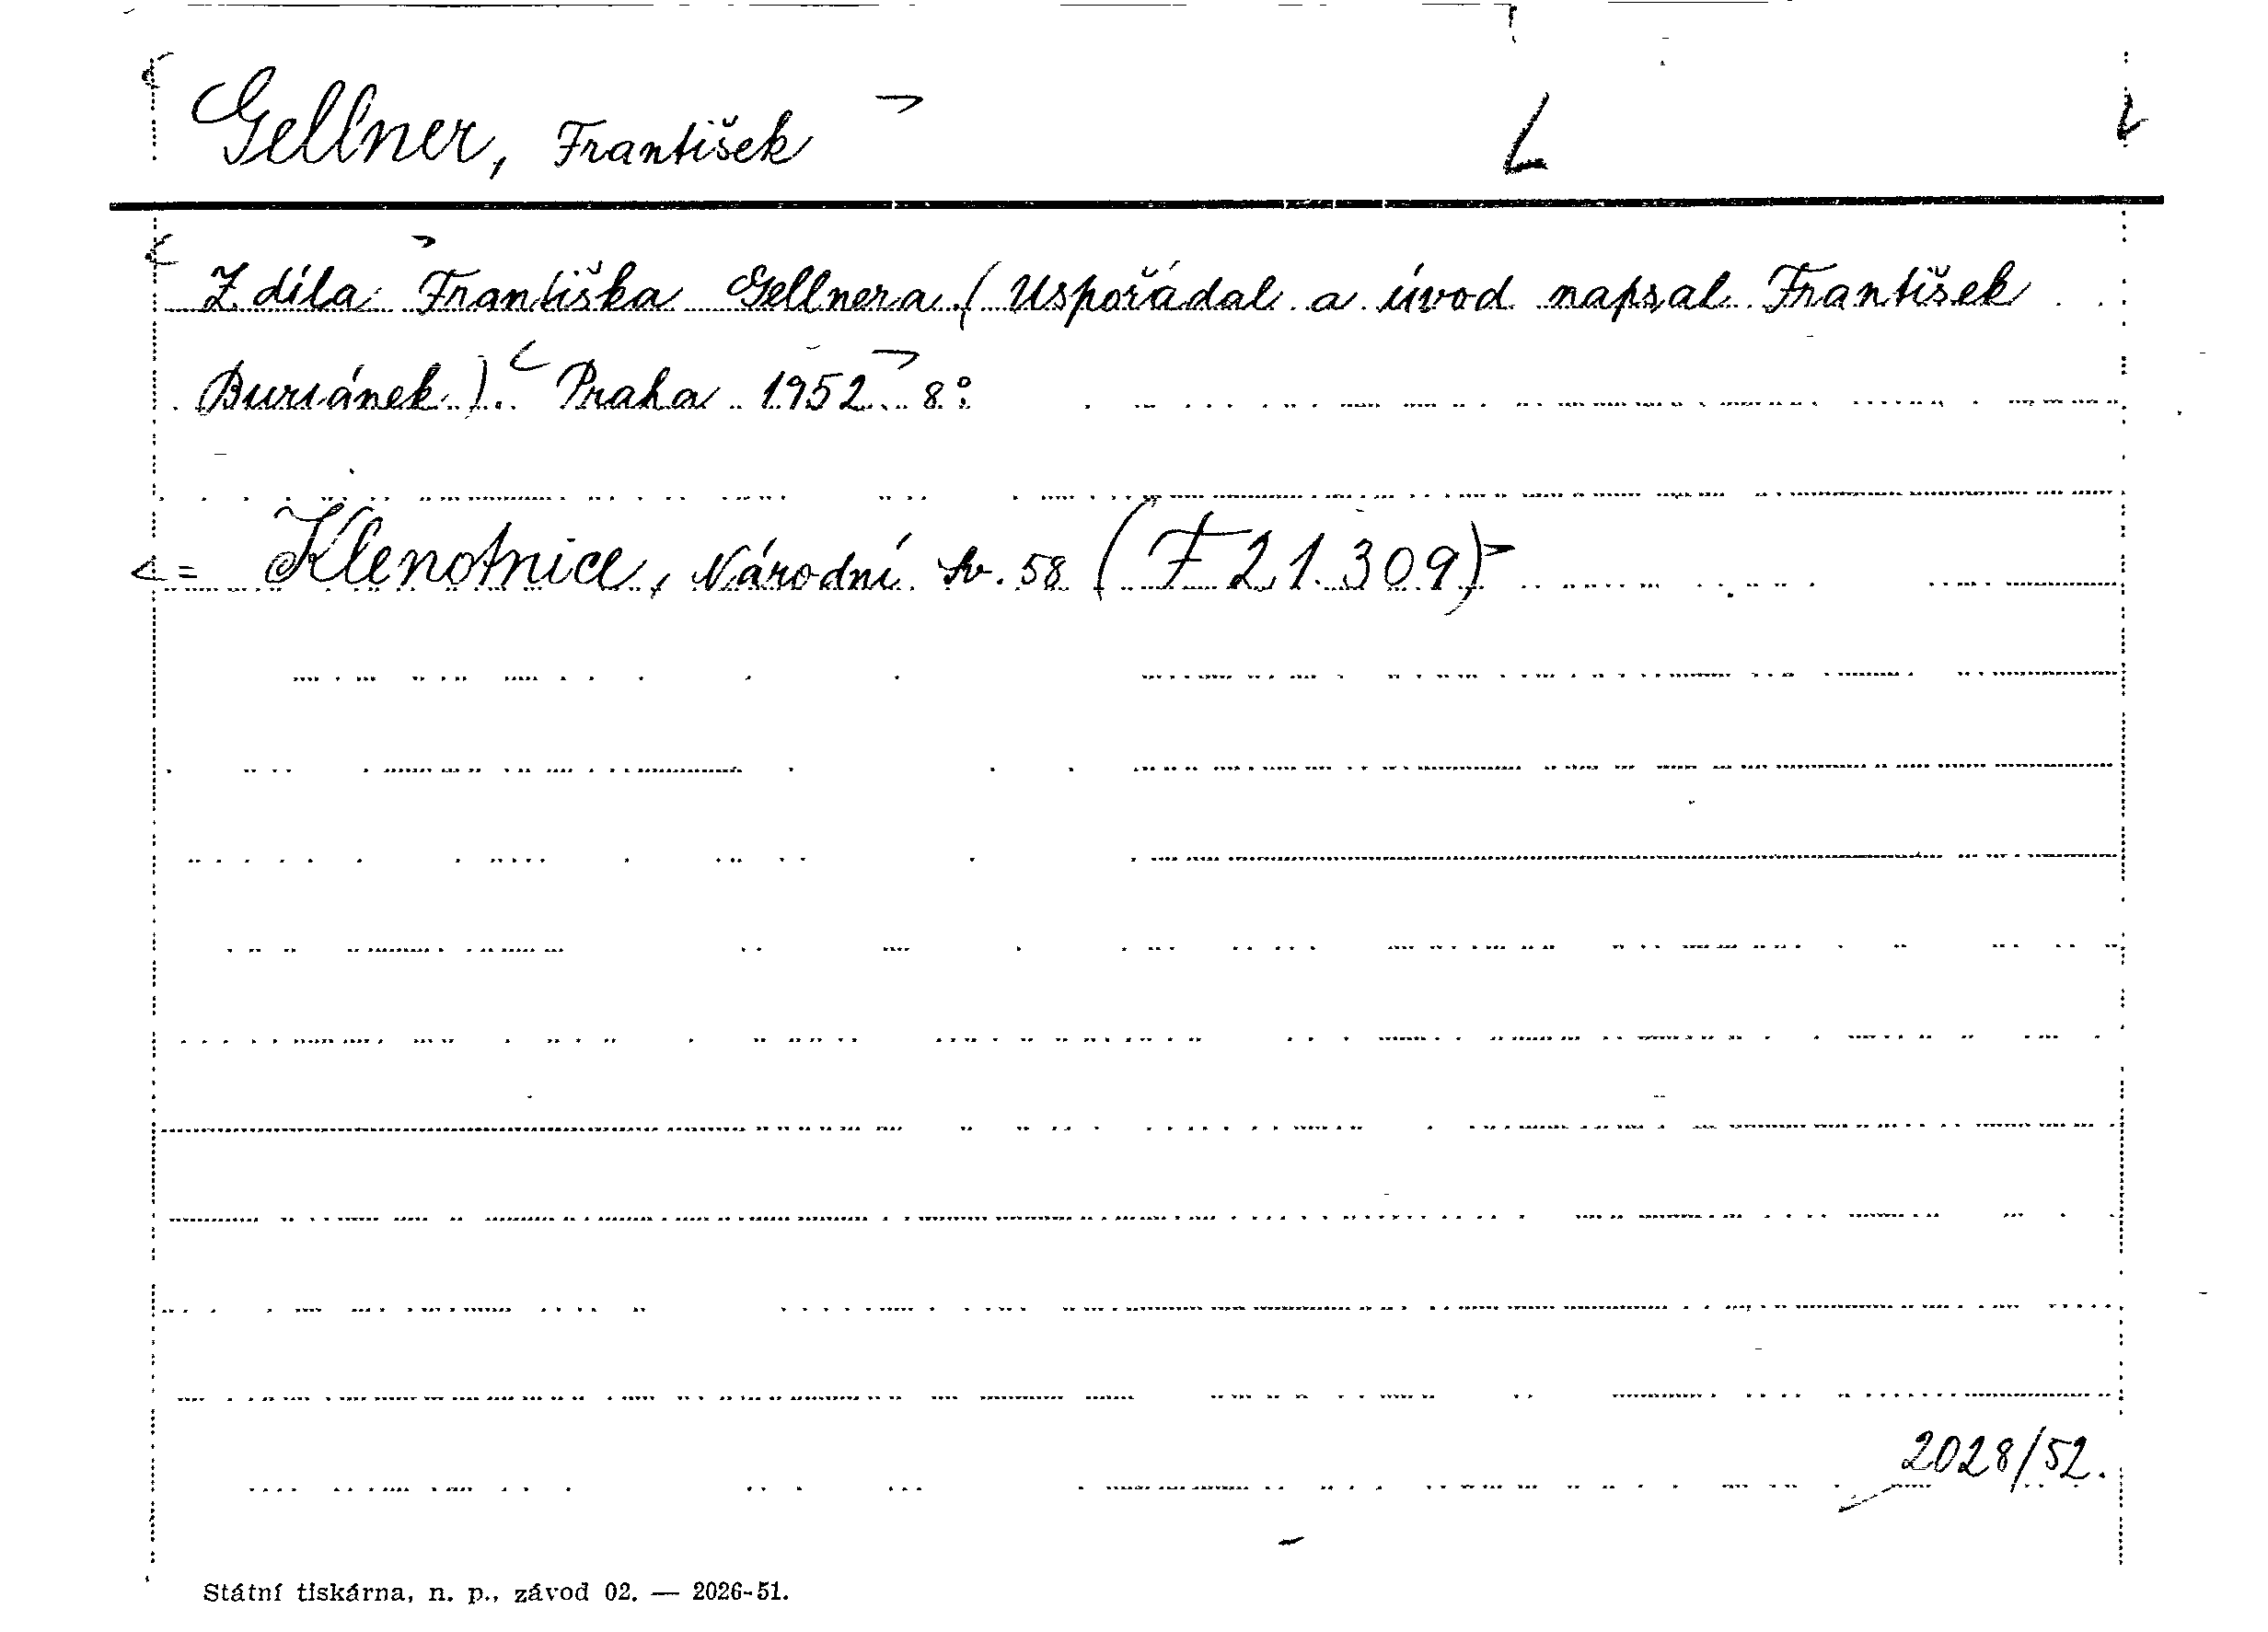 Gellner, František L
Z díla Františka Gellnera (Uspořádal a úvod napsal František
Buriánek). Praha 1952. 8°.
= Klenotnice, Národní sv. 58 (F 21.309)
2028/52.
Státní tiskárna, n. p., závod 02. — 2026-51.